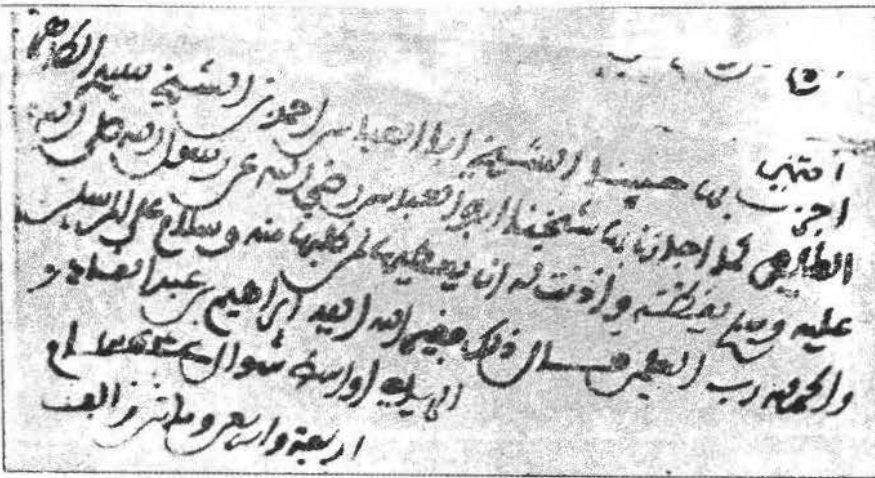 انتهى
اجزت بها حبيبنا الشيخ ابا العباس احمد بن الشيخ سيدي الطاهر
الطاهري كما اجازنا بها شيخنا ابو العباس رضي الله عن رسول الله صلى الله
عليه وسلم يقظة واذنت له ان يعطيها لمن طلبها منه وسلام على المرسلين
والحمد لله رب العلمين قال ذلك فقير الله العبد ابراهيم بن عبد القادر
اواسط شوال عام
اربعة واربعين ومائتين والف